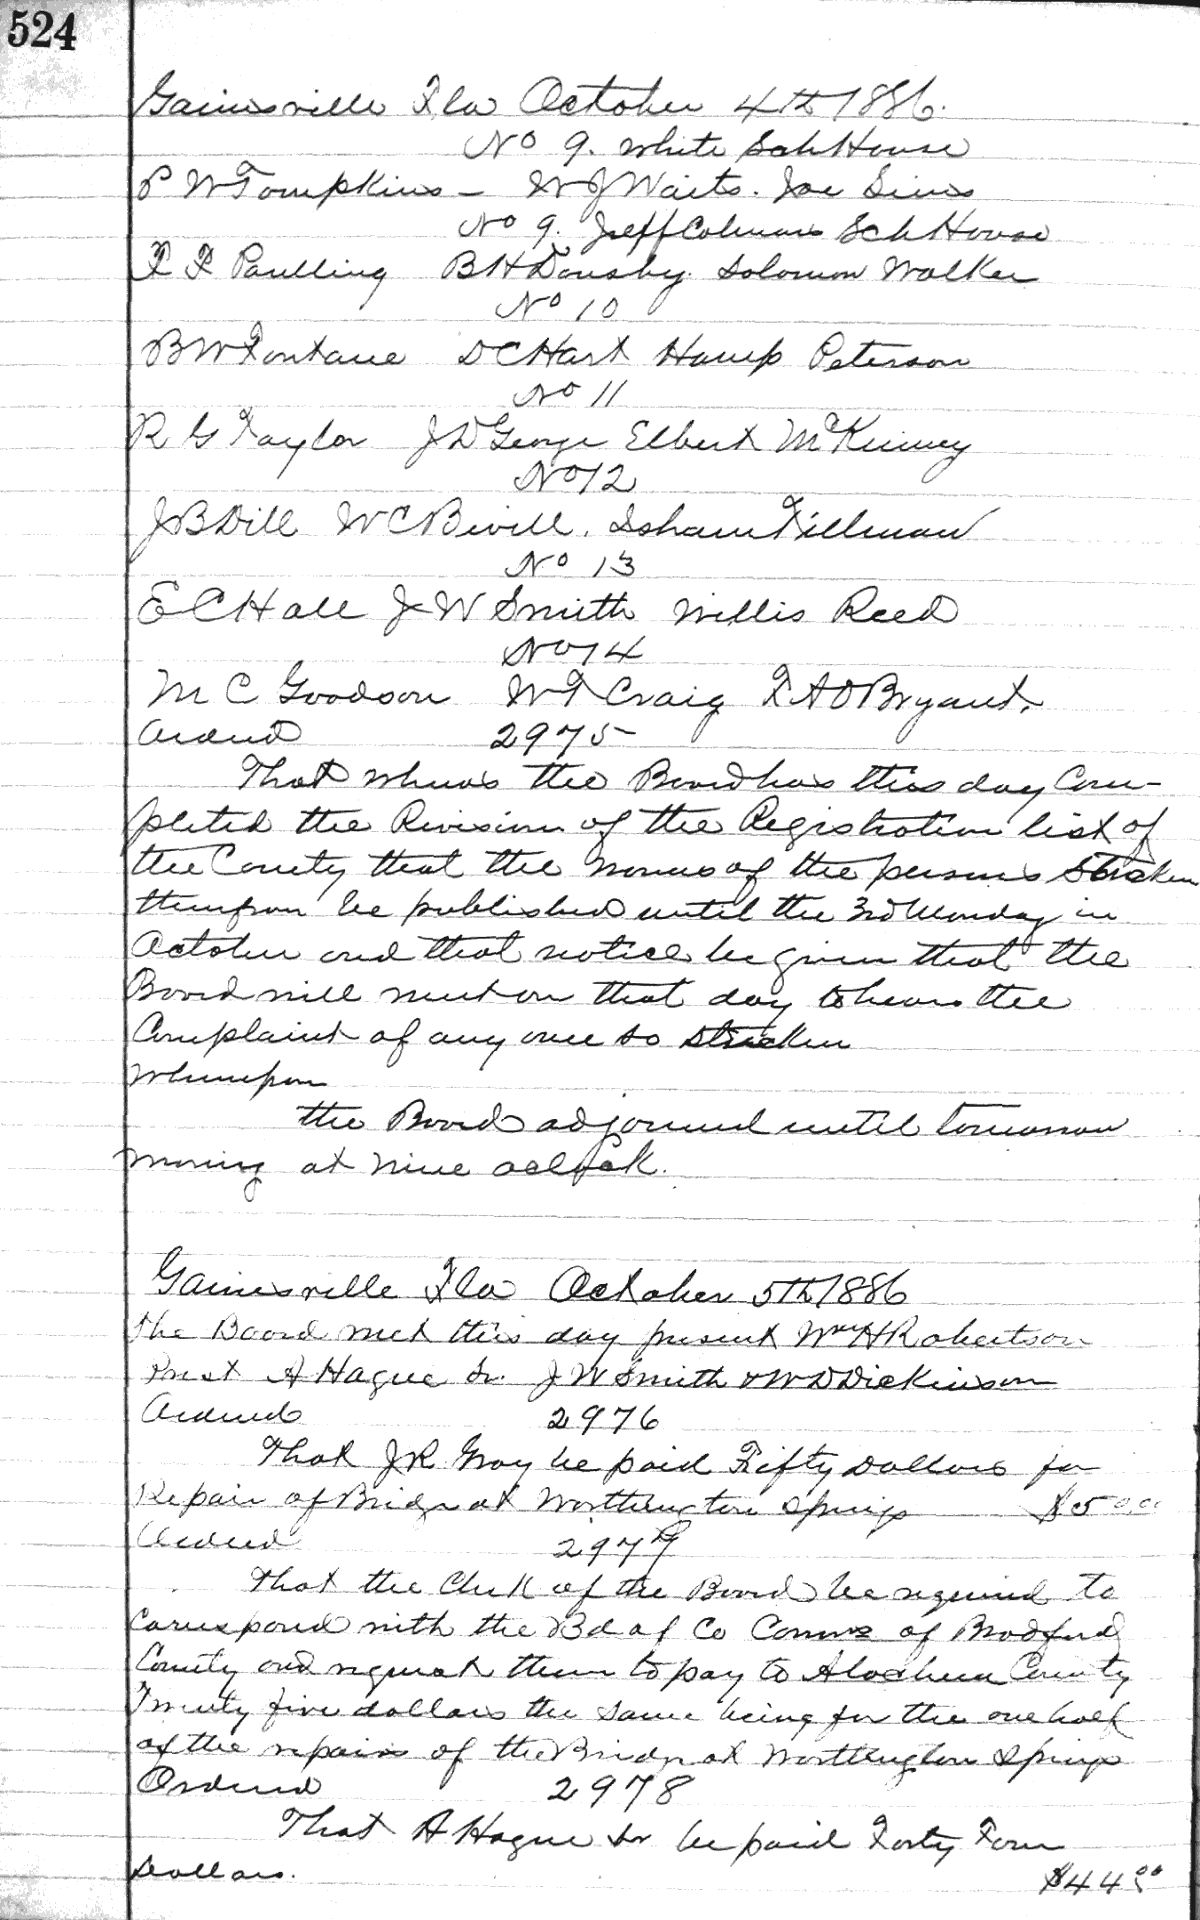 524
Gainesville Fla October 4th 1886.
No 9. White Sch House
P W Tompkins - W J Waits. Joe Sims
No 9. Jeff Colemans Sch House
F F Paulling B H Dansby. Solomon Walker
No 10
B W Fontane D C Hart Hamp Peterson
No 11
R G Taylor J D George Elbert McKinney
No 12
J B Dill W C Bevill. Isham Tillman
No 13
E C Hall J W Smith Willis Reed
No 14
M C Goodson W F Craig F A O Bryant.
Ordered 2975
That whereas the Board has this day Com-
pleted the Revision of the Registration list of
the County that the names of the persons Stricken
therefrom be published until the 3rd Monday in
October and that notice be given that the
Board will meet on that day to hear the
Complaint of any one so Stricken
Whereupon
the Board adjourned until tomorrow
morning at nine oclock.
Gainesville Fla October 5th 1886
The Board met this day present Wm H Robertson
Prest A Hague Sr. J W Smith & W D Dickinson
Ordered 2976
That J R Gray be paid Fifty Dollars for
Repair of Bridge at Worthington Springs $50.00
Ordered 2977
That the Clerk of the Board be required to
Correspond with the Bd of Co Comrs of Bradford
County and request them to pay to Alachua County
Twenty five dollars the same being for the one half
of the repairs of the Bridge at Worthington Springs
Ordered 2978
That A Hague Sr be paid Forty Four
Dollars. $44.00